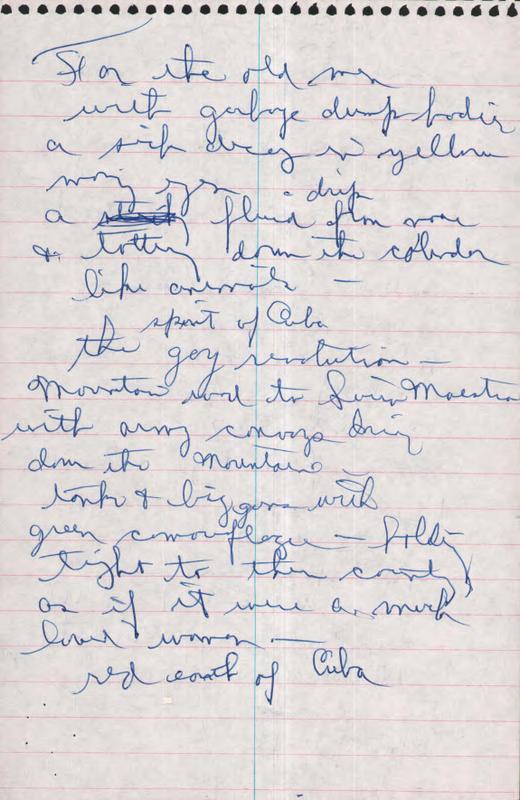 For the old men
with garbage dump bodies
a sick decay in yellow
eyes - drip
a fluid from nose
& tottering down the corridor
like animals —
spirit of Cuba
the gay revolution —
Mountain road to Sierra Maestra
with army convoys
down the mountains —
tanks & big guns with
green camouflage — holding
tight to their country
as if it were a much
loved woman —
red earth of Cuba